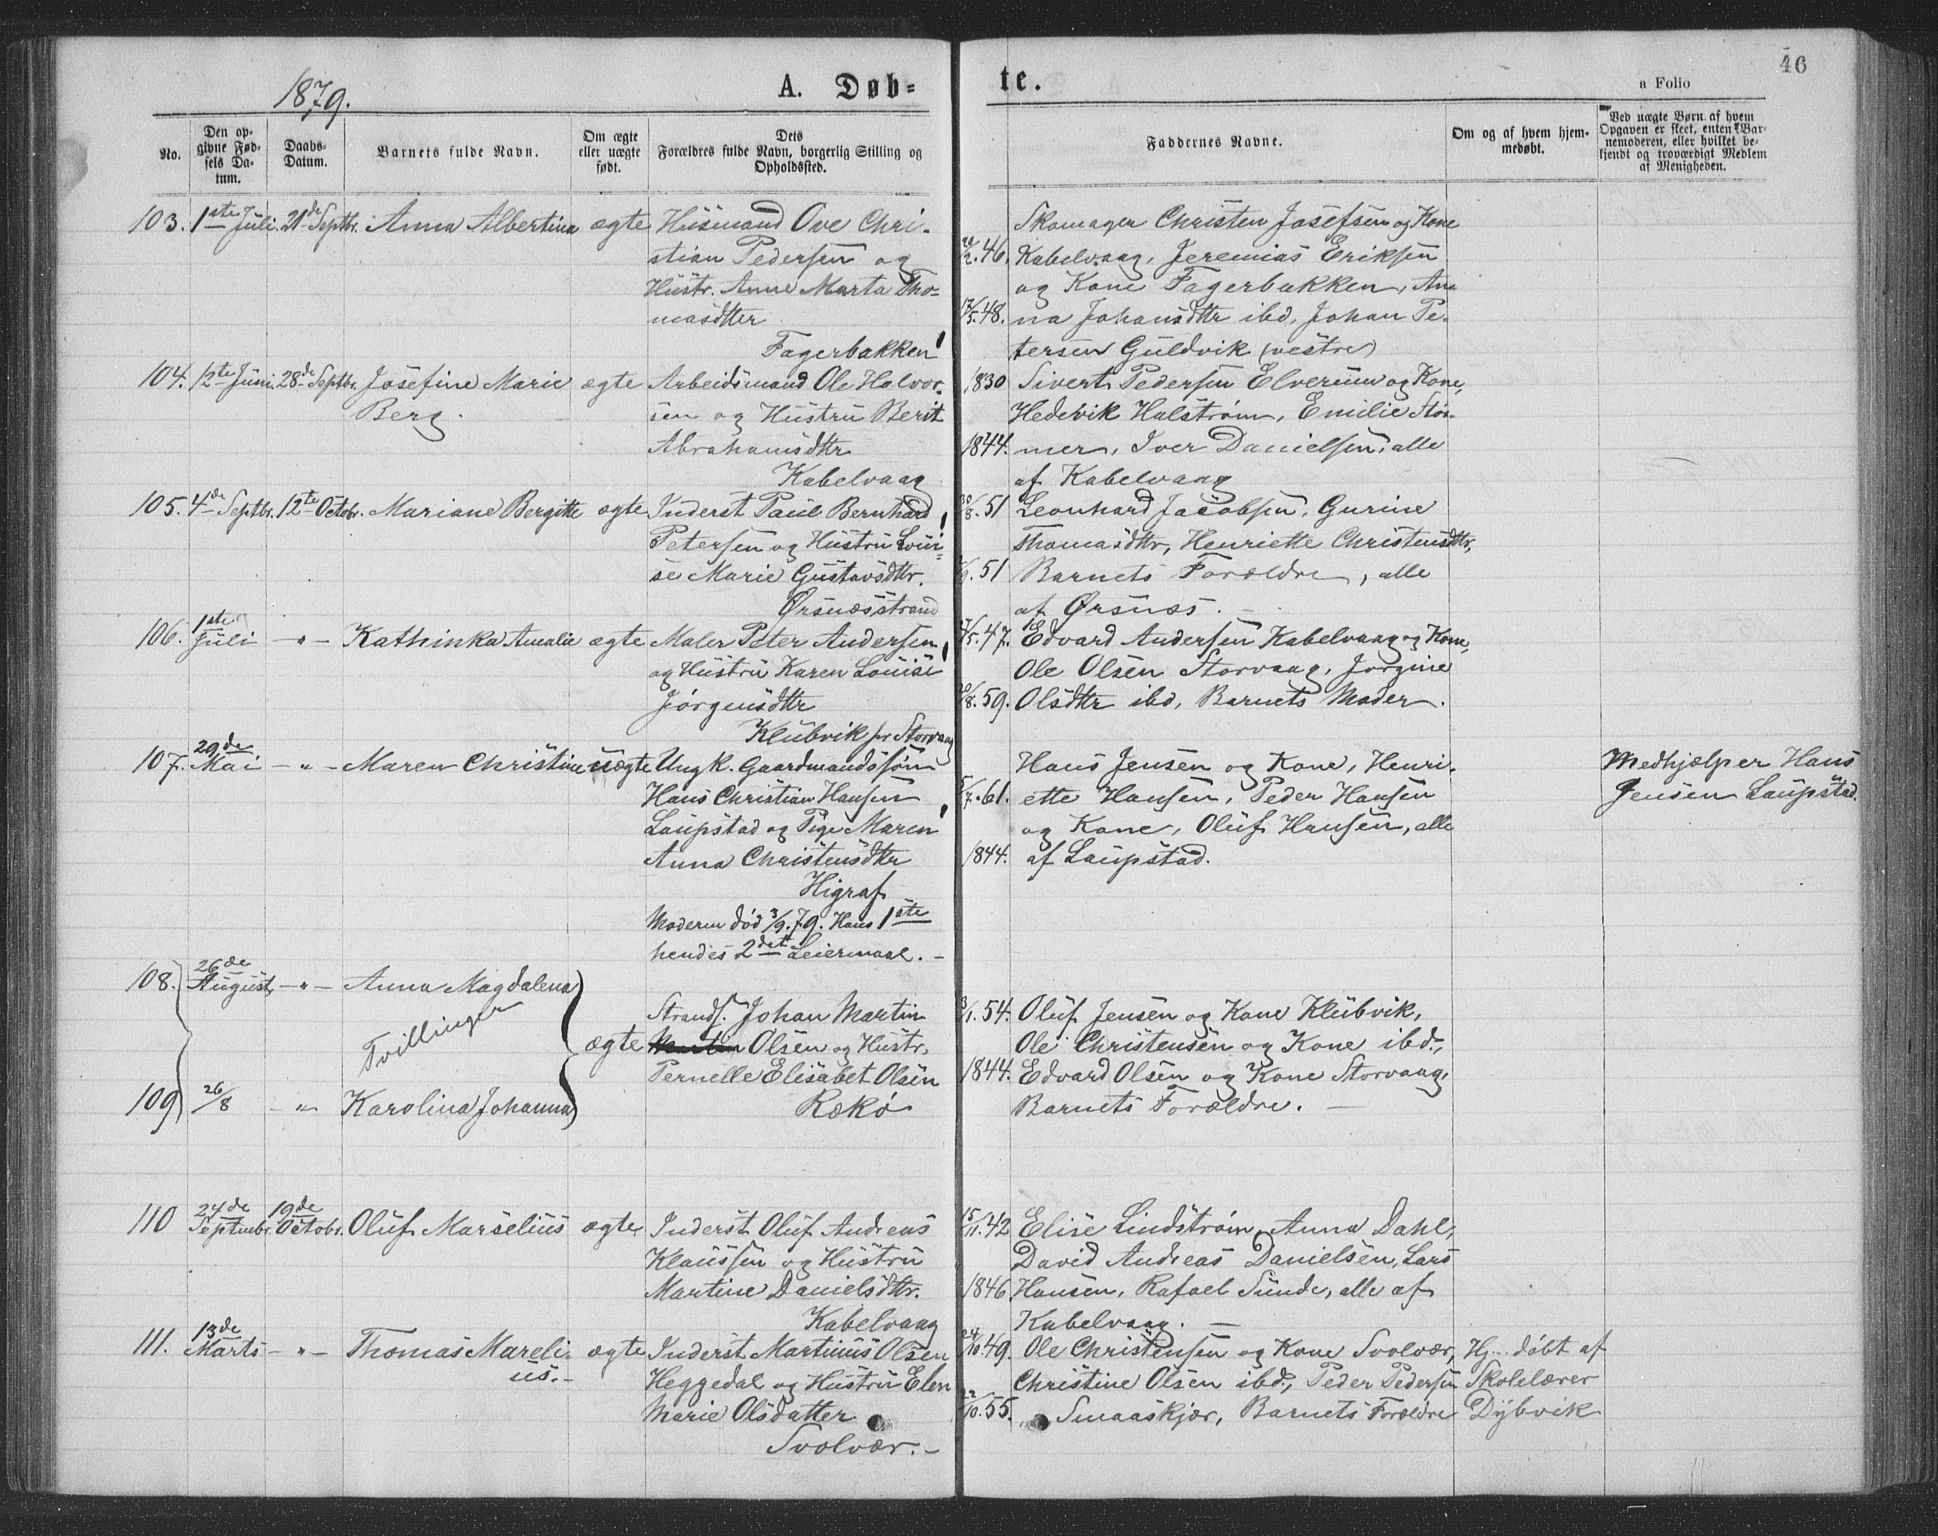 1879.
A. Døb=
te.
46
a Folio
No.
Den op-
givne Fød-
sels Da-
tum.
Daabs-
Datum.
Barnets fulde Navn.
Om ægte
eller uægte
født.
Dets
Forældres fulde Navn, borgerlig Stilling og
Opholdssted.
Faddernes Navne.
Om og af hvem hjem-
medøbt.
Ved uægte Børn af hvem
Opgaven er skeet, enten Bar-
nemoderen, eller hvilket be-
kjendt og troværdigt Medlem
af Menigheden.
103. 1ste Juli 21de Septbr. Anna Albertina ægte Husmand Ove Chri-
stian Pedersen og
Hustr. Anne Marta Tho-
masdtter
Fagerbakken
Skomager Christen Josefsen og Kone
46. Kabelvaag, Jeremias Eriksen
og Kone Fagerbakken, An-
17/5.48. na Johansdtr ibd, Johan Pe-
tersen Guldvik (vestre)
104. 12te Juni. 28de Septbr. Josefine Marie ægte Arbeidsmand Ole Halvor-
Berg. sen og Hustru Berit
Abrahamsdtr
Kabelvaag
1830 Sivert Pedersen Elverum og Kone,
Hedevik Halstrøm, Emilie Stør-
1844. mer, Iver Danielsen, alle
af Kabelvaag
105. 4de Septbr. 12te Octobr. Mariane Bergitte ægte Inderst Paul Bernhard
Petersen og Hustru Loui-
se Marie Gustavsdtr.
Ørsnæsstrand
30/8.51 Leonhard Jacobsen, Gurine
Thomasdtr, Henriette Christensdtr,
51 Barnets Forældre, alle
af Ørsnæs.
106. 1ste Juli -"- Kathinka Amalie ægte Maler Peter Andersen
og Hustru Karen Louise
Jørgensdtr
Klubvik pr Storvaag
47. Edvard Andersen Kabelvaag og Kone,
Ole Olsen Storvaag, Jorgine
59. Olsdtr ibd, Barnets Moder.
107. 29de Mai -"- Maren Christine uægte Ungk. Gaardmandssøn
Hans Christian Hansen
Laupstad og Pige Maren
Anna Christensdtr
Higraf
Moderen død 3/9.79. Hans 1ste
hendes 2det Leiermaal. -
Hans Jensen og Kone, Henri-
5/7.61. ette Hansen, Peder Hansen
og Kone, Oluf Hansen, alle
1844. af Laupstad.
Medhjælper Hans
Jensen Laupstad.
108. 26de August -"- Anna Magdalena
Tvillinger
Strands. Johan Martin
ægte Martin Olsen og Hustr.
Pernelle Elisabet Olsen
109 26/8 -"- Karolina Johanna Rækø
3/1.54. Oluf Jensen og Kone Klubvik,
Ole Christensen og Kone ibd.,
1844. Edvard Olsen og Kone Storvaag,
Barnets Forældre. -
110 24de Septmbr. 19de Octobr. Oluf Marselius ægte Inderst Oluf Andreas
Klaussen og Hustru
Martine Danielsdtr.
Kabelvaag
15/11.42 Elise Lindstrøm, Anna Dahl,
David Andreas Danielsen, Lars
1846. Hansen, Rafael Sunde, alle af
Kabelvaag. -
111. 13de Marts -"- Thomas Mareli- ægte Inderst Martinus Olsen
us.- Heggedal og Hustru Elen
Marie Olsdatter
Svolvær. -
24/10.49. Ole Christensen og Kone Svolvær,
Christine Olsen ibd., Peder Pedersen
22/10.55. Smaaskjær, Barnets Forældre
Hj. døbt af
Skolelærer
Dybvik